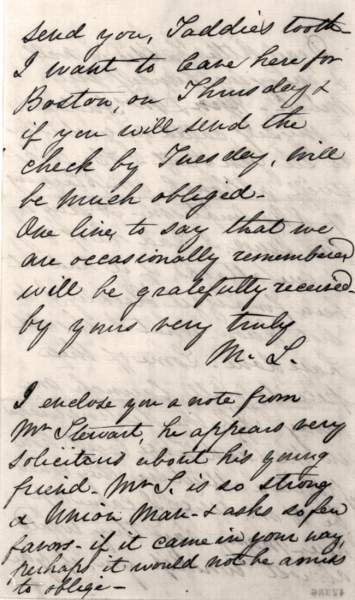 send you, Taddie's tooth-
I want to leave here for
Boston, on Thursday &
if you will send the
check by Tuesday, will
be much obliged-
One line, to say that we
are occasionally remembered
will be gratefully received-
by yours very truly
M. L.
I enclose you a note from
Mr Stewart, he appears very
solicitous about his young
friend- Mr S. is so strong
a Union man- & asks so few
favors- if it came in your way,
perhaps it would not be amiss
to oblige-